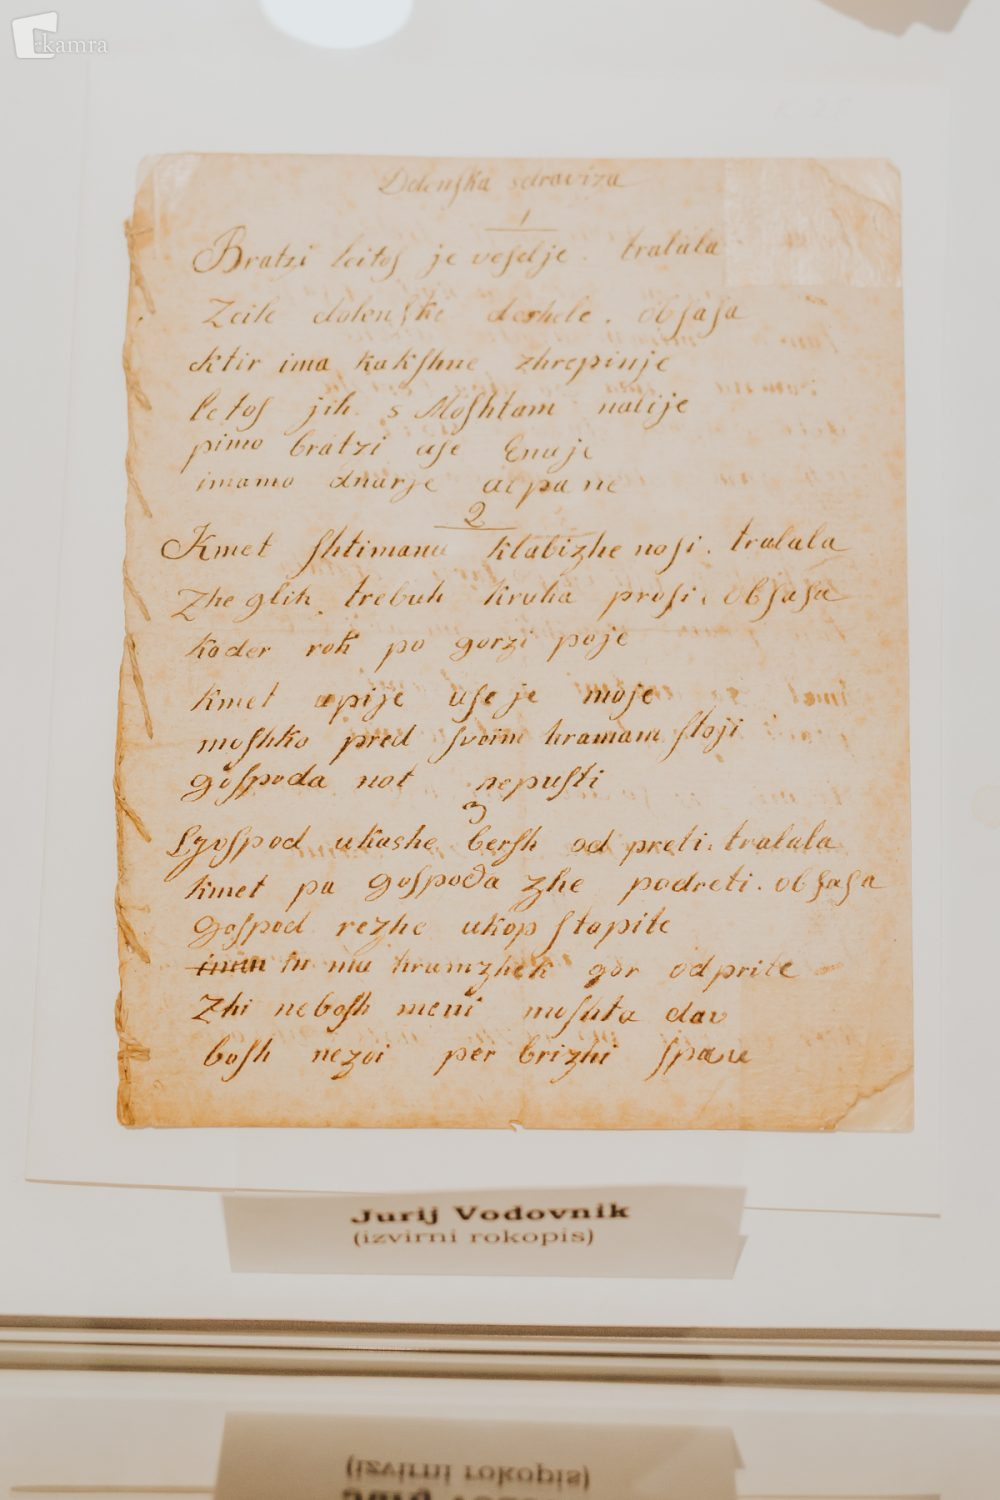 kamra
Dolenſka sdraviza
1
Bratzi leitoſ je veſelje. tralala
Zeile dolenſke deshele. obſaſa
ktir ima kakſhne zhrepinje
letoſ jih s Moſhtam nalije
pimo bratzi aſe Enaje
imamo dnarje aepa ne
2
Kmet ſhtimanu klabizhe noſi. tralala
Zhe glih trebuh kruha proſi. obſaſa
kader roh po gorzi poje
kmet apije uſe je moje
moshko pred ſvoim hramam ſtoji
goſpoda not nepuſti
3
goſpod ukashe berſh od preti. tralala
kmet pa goſpoda zhe podreti. obſaſa
goſpod rezhe ukop ſtopite
in mu hramzhek gor odprite
Zhi neboſh meni moſhta dav
boſh nezoi per brizhi ſpau
Jurij Vodovnik
(izvirni rokopis)
(izvirni rokopis)